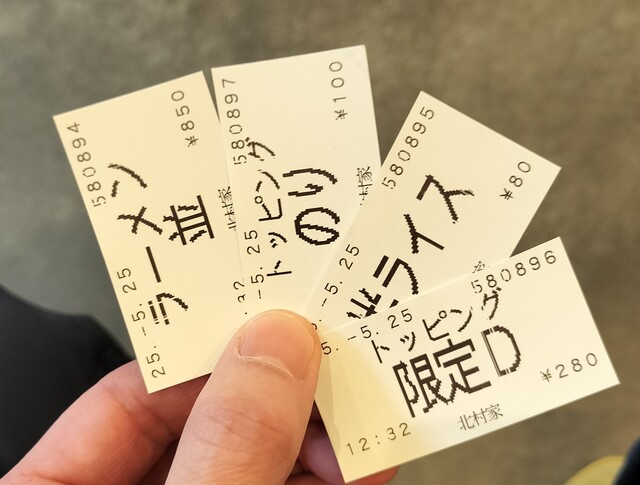 580894
¥850
ラーメン
並
25.-5.25
北村家
580897
¥100
トッピング
のり
-5.25
580895
¥80
ライス
-5.25
580896
5.-5.25
トッピング
限定D
¥280
12:32
北村家